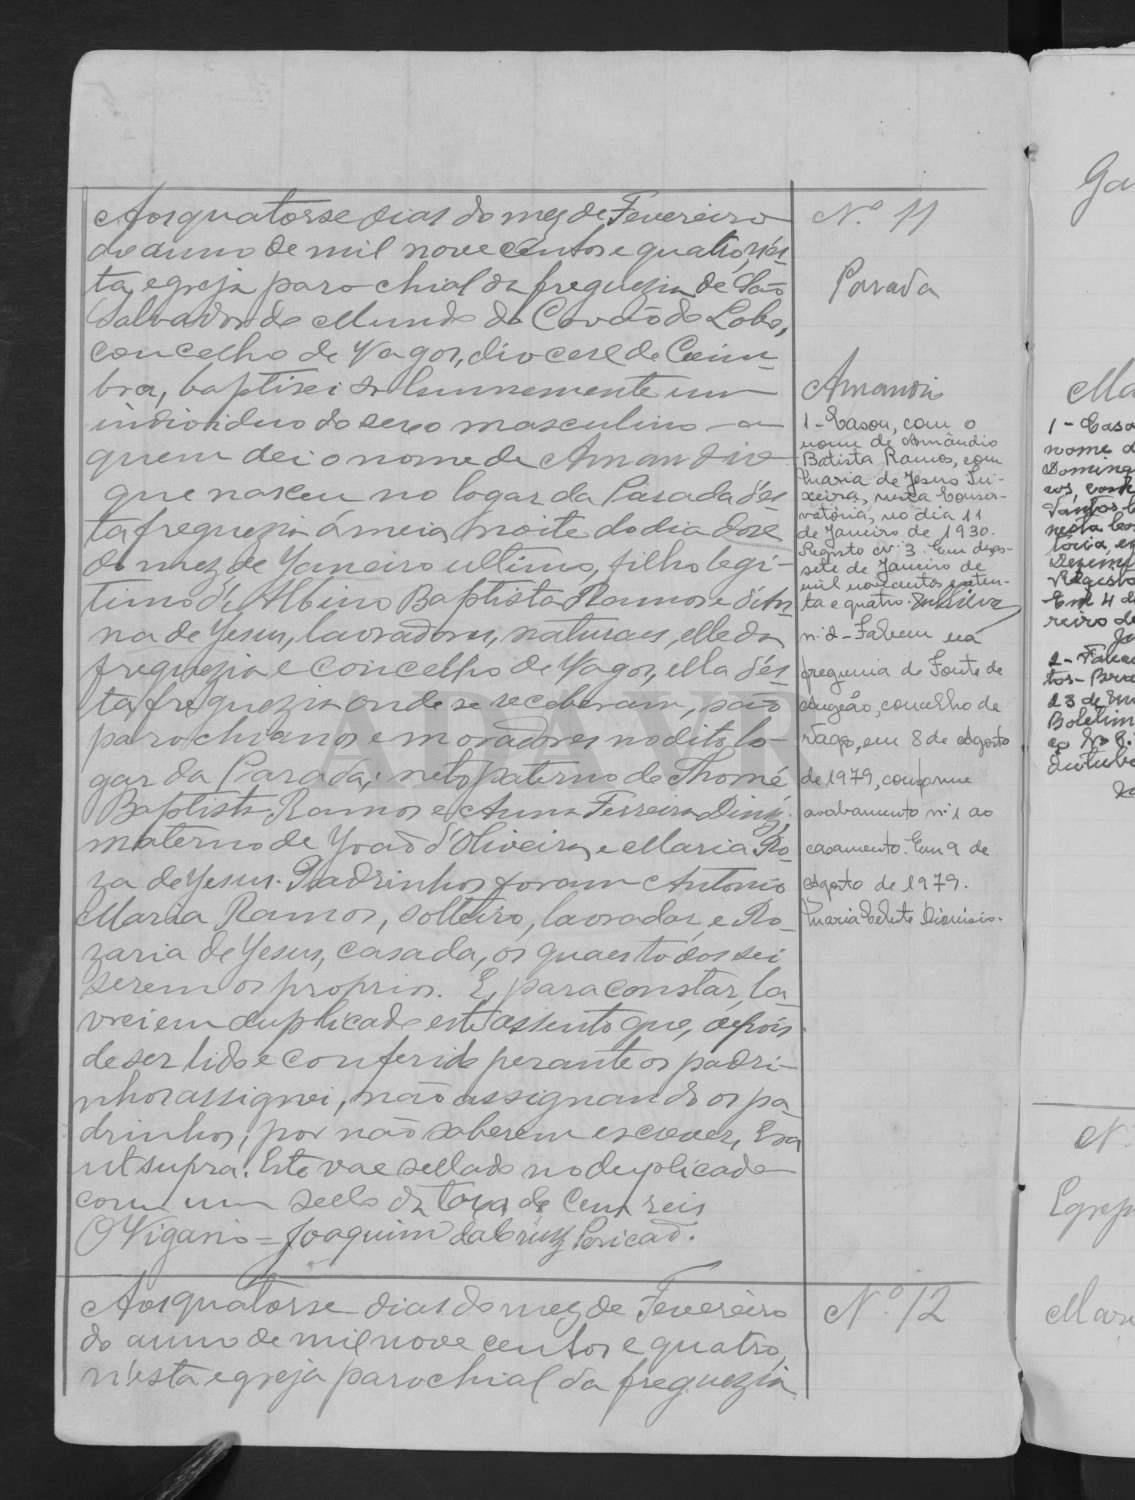 Aos quatorse dias do mez de Fevereiro
do anno de mil nove centos e quatro, n'és-
ta egreja parochial da freguezia de São
Salvador do Mundo do Covão do Lobo,
concelho de Vagos, diocese de Coim-
bra, baptisei solemnemente um
individuo do sexo masculino a
quem dei o nome de Amandio
que nasceu no logar da Parada d'és-
ta freguezia á meia noite do dia dose
do mez de Janeiro ultimo, filho legi-
timo d'Albino Baptista Ramos e d'An-
na de Jesus, lavradores, naturaes, elle da
freguezia e concelho de Vagos, ella d'és-
ta freguezia onde se receberam, são
parochianos e moradores no dito lo-
gar da Parada; neto paterno de Thomé
Baptista Ramos e Anna Ferreira Diniz,
materno de João d'Oliveira e Maria Ro-
za de Jesus. Padrinhos foram Antonio
Maria Ramos, solteiro, lavrador, e Ro-
zaria de Jesus, casada, os quaes todos sei
serem os proprios. E, para constar, la-
vrei em duplicado este assento que, depois
de ser lido e conferido perante os padri-
nhos assignei, não assignando os pa-
drinhos, por não saberem escrever, Era
ut supra. Este vae sellado no duplicado
com um sello da taxa de cem reis
O Vigario = Joaquim da Cruz Pericão.
Nº 11
Parada
Amandio
1 - Casou, com o
nome de Amândio
Batista Ramos, com
Maria de Jesus Tei-
xeira, nesta Conser-
vatória, no dia 11
de Janeiro de 1930.
Registo nº 3. Em dezas-
sete de Janeiro de
mil novecentos e seten-
ta e quatro.
nº 2 - Faleceu na
freguesia de Fonte de
Angeão, concelho de
Vagos, em 8 de Agosto
de 1979, conforme
averbamento nº 1 ao
casamento. Em 9 de
Agosto de 1979.
Maria Celeste Dionísio.
Aos quatorse dias do mez de Fevereiro
do anno de mil nove centos e quatro,
n'ésta egreja parochial da freguezia
Nº 12
ADAVR
Ga
Ma
1 - Casa
nome d
Nº
Egrej
Mar